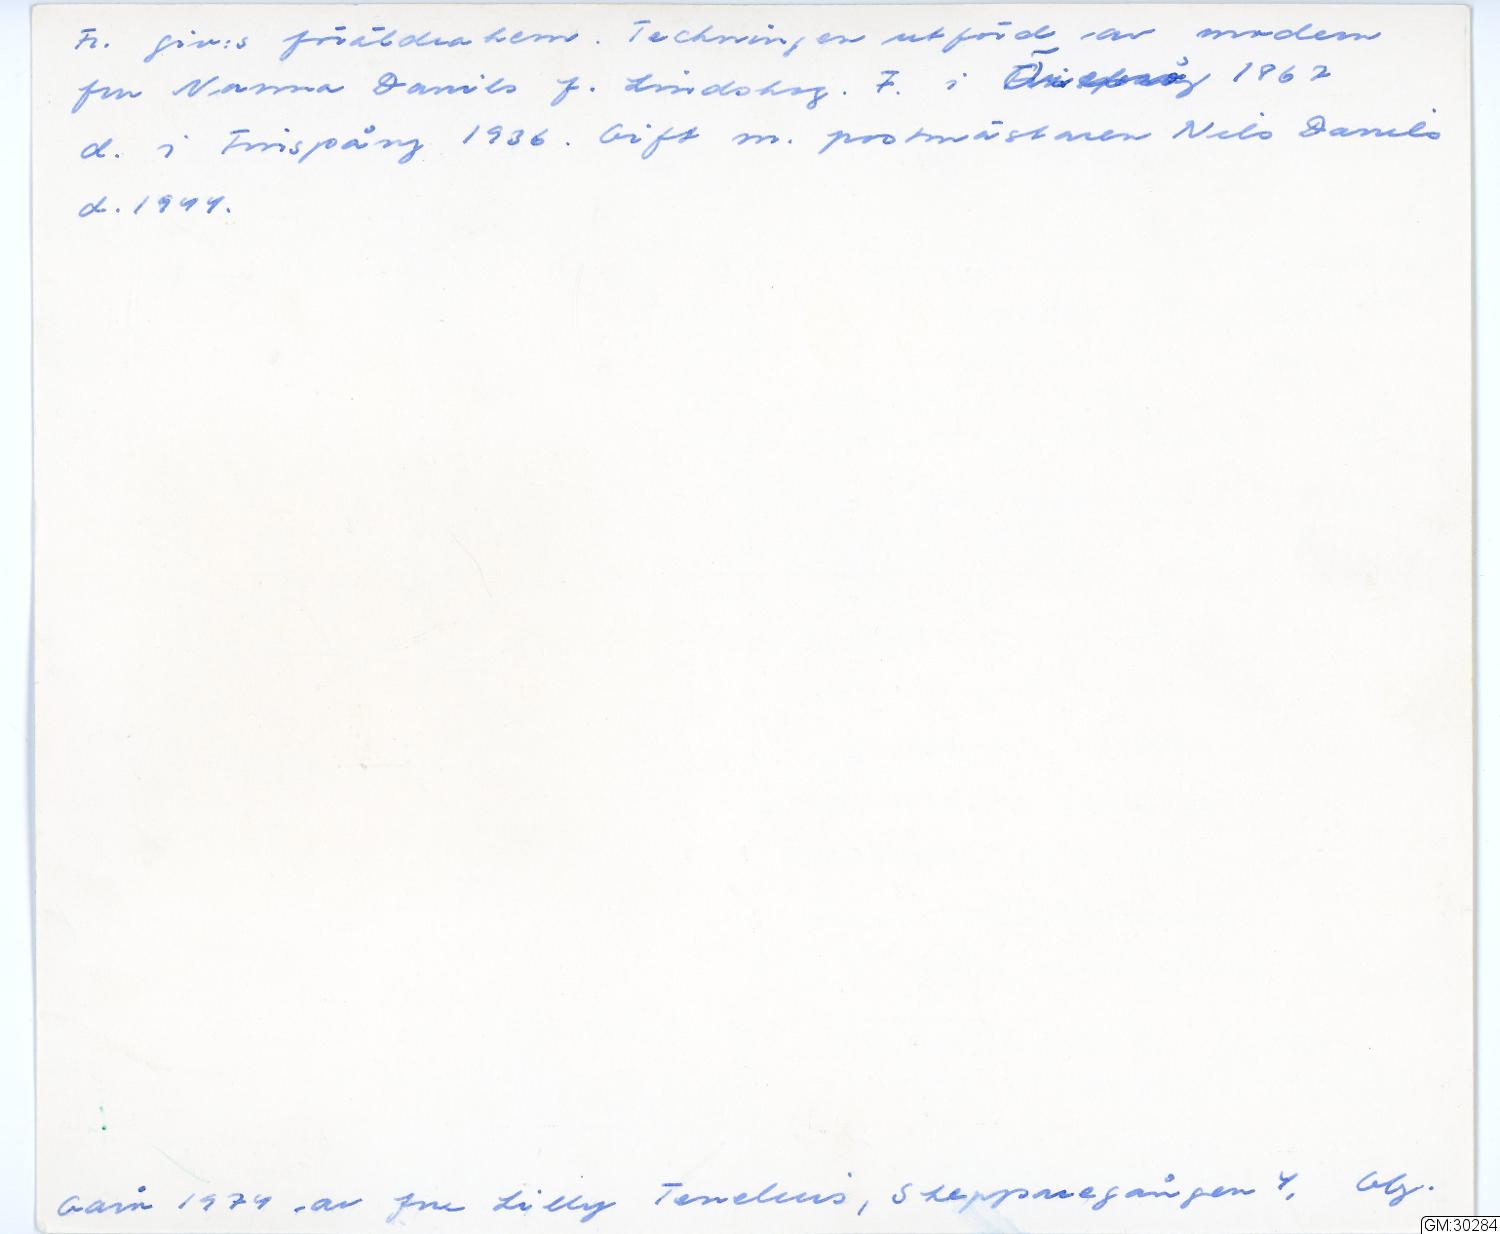 Fr. giv:s föräldrahem. Teckningen utförd av modern
fru Nanna Danils f. Lindskog. F. i 1862
d. i Finspång 1936. Gift m. postmästaren Nils Danils
d. 1944.
Gåva 1974 av fru Lilly Tenelius, Skepparegången 4, Gbg.
GM:30284